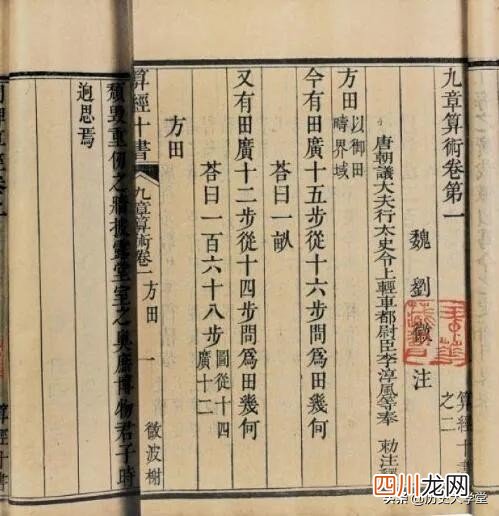 九章算術卷第一
算經十書
之二
魏 劉徽 注
唐朝議大夫行太史令上輕車都尉臣李淳風等奉 勅注釋
方田 以御田疇界域
今有田廣十五步從十六步問爲田幾何
荅曰一畝
又有田廣十二步從十四步問爲田幾何
荅曰一百六十八步 圖從十四廣十二
方田
算經十書 九章算術卷一 方田 一 微波榭
頹毀重仞之牆披露堂室之奧庶博物君子時
迥思焉
算經十書
四川龙网
头条 @历史大学堂